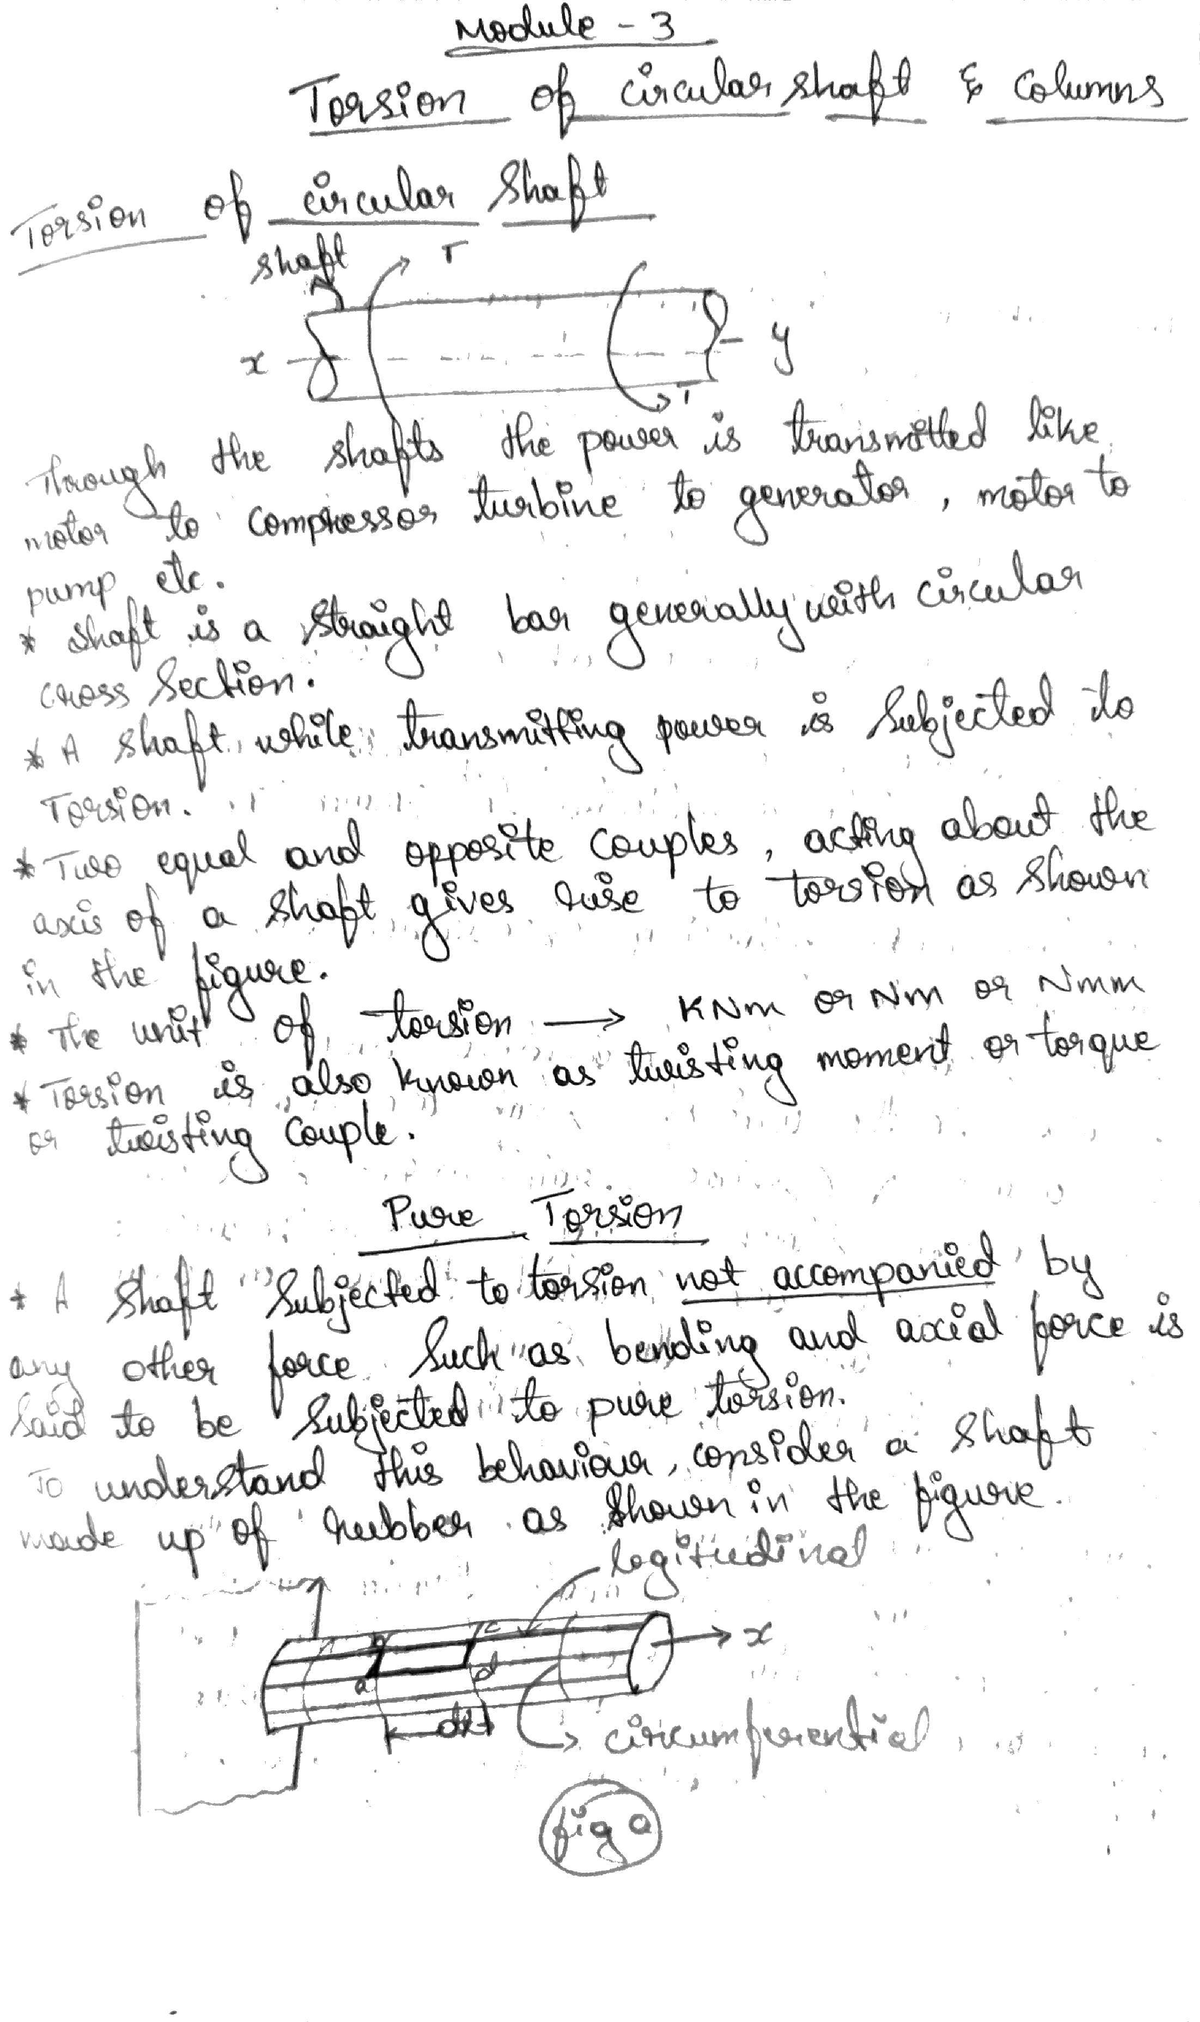 Module - 3
Torsion of circular shaft & columns
Torsion of circular shaft
shaft T
x y
T
Through the shafts the power is transmitted like
motor to compressor turbine to generator, motor to
pump etc.
* shaft is a straight bar generally with circular
cross section.
* A shaft, while transmitting power is subjected to
Torsion.
* Two equal and opposite couples, acting about the
axis of a shaft gives rise to torsion as shown
in the figure.
* The unit of torsion → KNm or Nm or Nmm
* Torsion is also known as twisting moment or torque
or twisting couple.
Pure Torsion
* A shaft subjected to torsion not accompanied by
any other force such as bending and axial force is
said to be subjected to pure torsion.
To understand this behaviour, consider a shaft
made up of rubber as shown in the figure.
logitudinal
b c x
a d
circumferential
fig a